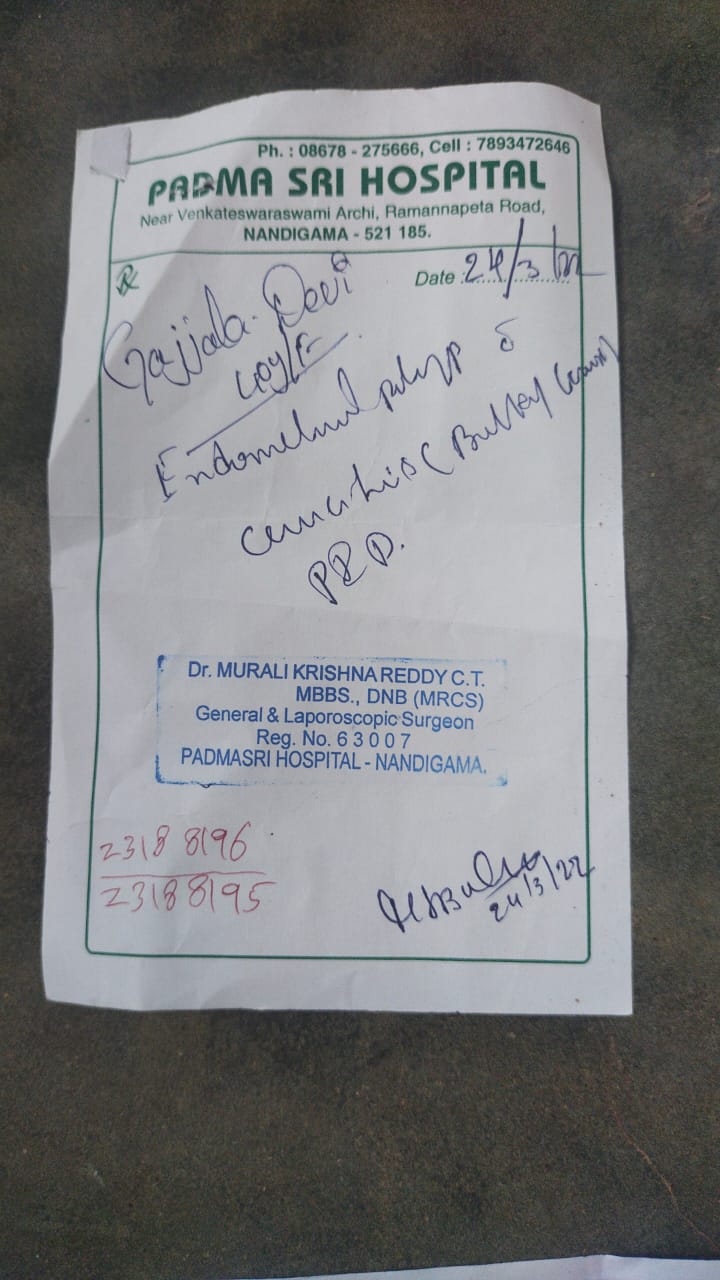 Ph. : 08678 - 275666, Cell : 7893472646
PADMA SRI HOSPITAL
Near Venkateswaraswami Archi, Ramannapeta Road,
NANDIGAMA - 521 185.
Date : 24/3/22
Gajjala. Devi
polyp
Dr. MURALI KRISHNA REDDY C.T.
MBBS., DNB (MRCS)
General & Laporoscopic Surgeon
Reg. No. 6 3 0 0 7
PADMASRI HOSPITAL - NANDIGAMA.
2318 8196
2318 8195
24/3/22